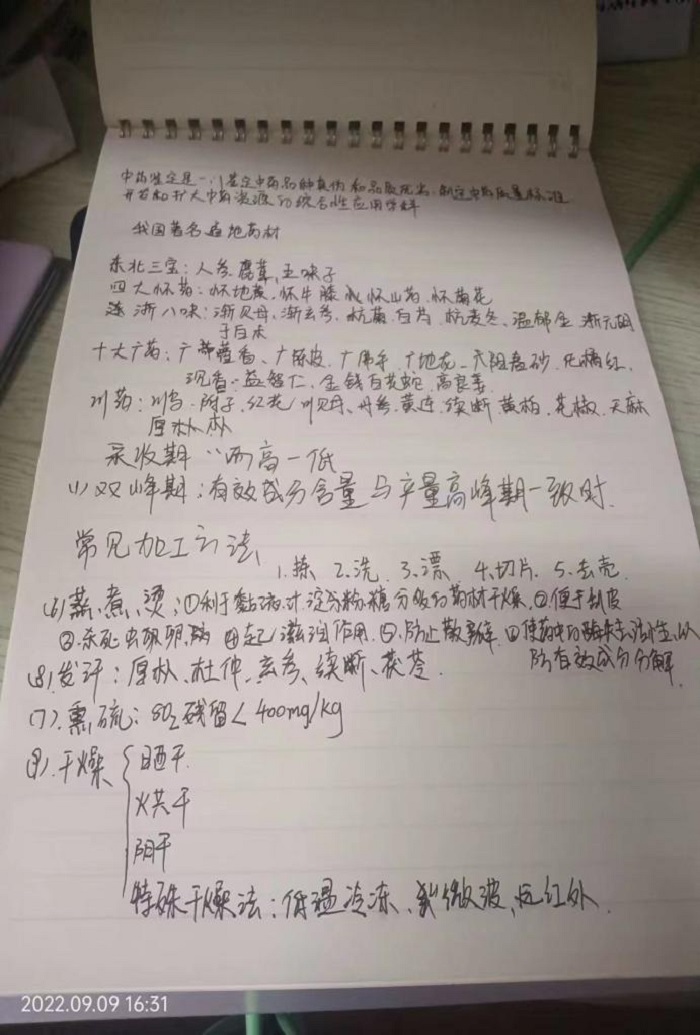 中药鉴定是一门鉴定中药品种真伪和品质优劣,制定中药质量标准
开发和扩大中药资源的综合性应用学科
我国著名道地药材
东北三宝:人参、鹿茸、五味子
四大怀药:怀地黄、怀牛膝、怀山药、怀菊花
浙八味:浙贝母、浙玄参、杭菊、白芍、杭麦冬、温郁金、浙元胡
于白术
十大广药:广藿香、广陈皮、广佛手、广地龙、阳春砂、化橘红、
沉香、益智仁、金钱白花蛇、高良姜
川药:川乌、附子、红花、川贝母、丹参、黄连、续断、黄柏、花椒、天麻
厚朴
采收期 “两高一低
(1)双峰期:有效成分含量与产量高峰期一致时.
常见加工方法
1.拣 2.洗 3.漂 4.切片. 5.去壳
(6)蒸、煮、烫:①利于黏液汁、淀粉、糖分多的药材干燥,②便于刮皮
③杀死虫卵 ④起滋润作用、⑤防止散 ⑥使药中的酶失去活性,以
防有效成分分解
(8)发汗:厚朴、杜仲、玄参、续断、茯苓.
(7)熏硫:SO2残留<400mg/kg
(9).干燥
晒干.
烘干
阴干
特殊干燥法:低温冷冻、微波、远红外.
2022.09.09 16:31